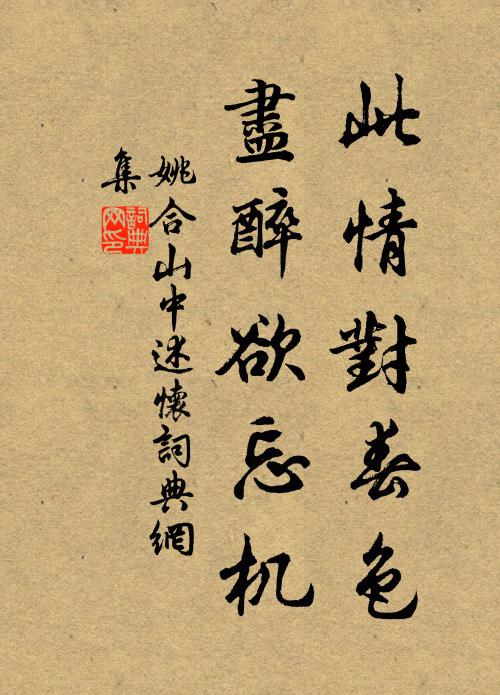 此情對春色
盡醉欲忘机
姚合山中述懷詞典網
集
詞典网印